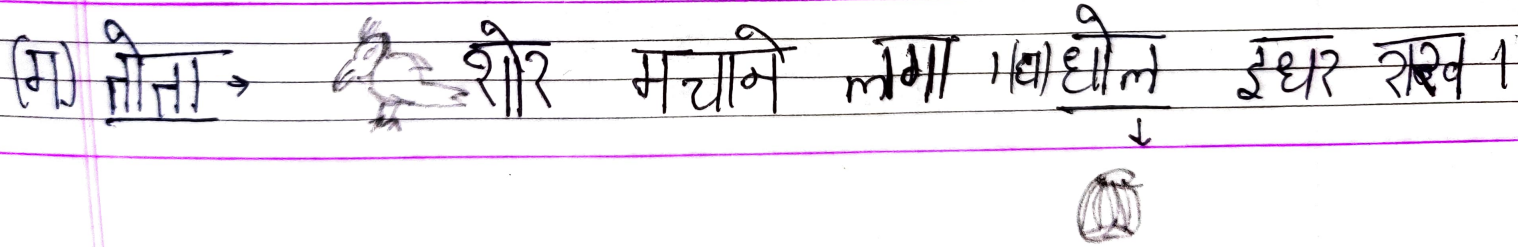 (ग) तोता → शोर मचाने लगा । (घ) धोल इधर राख ।